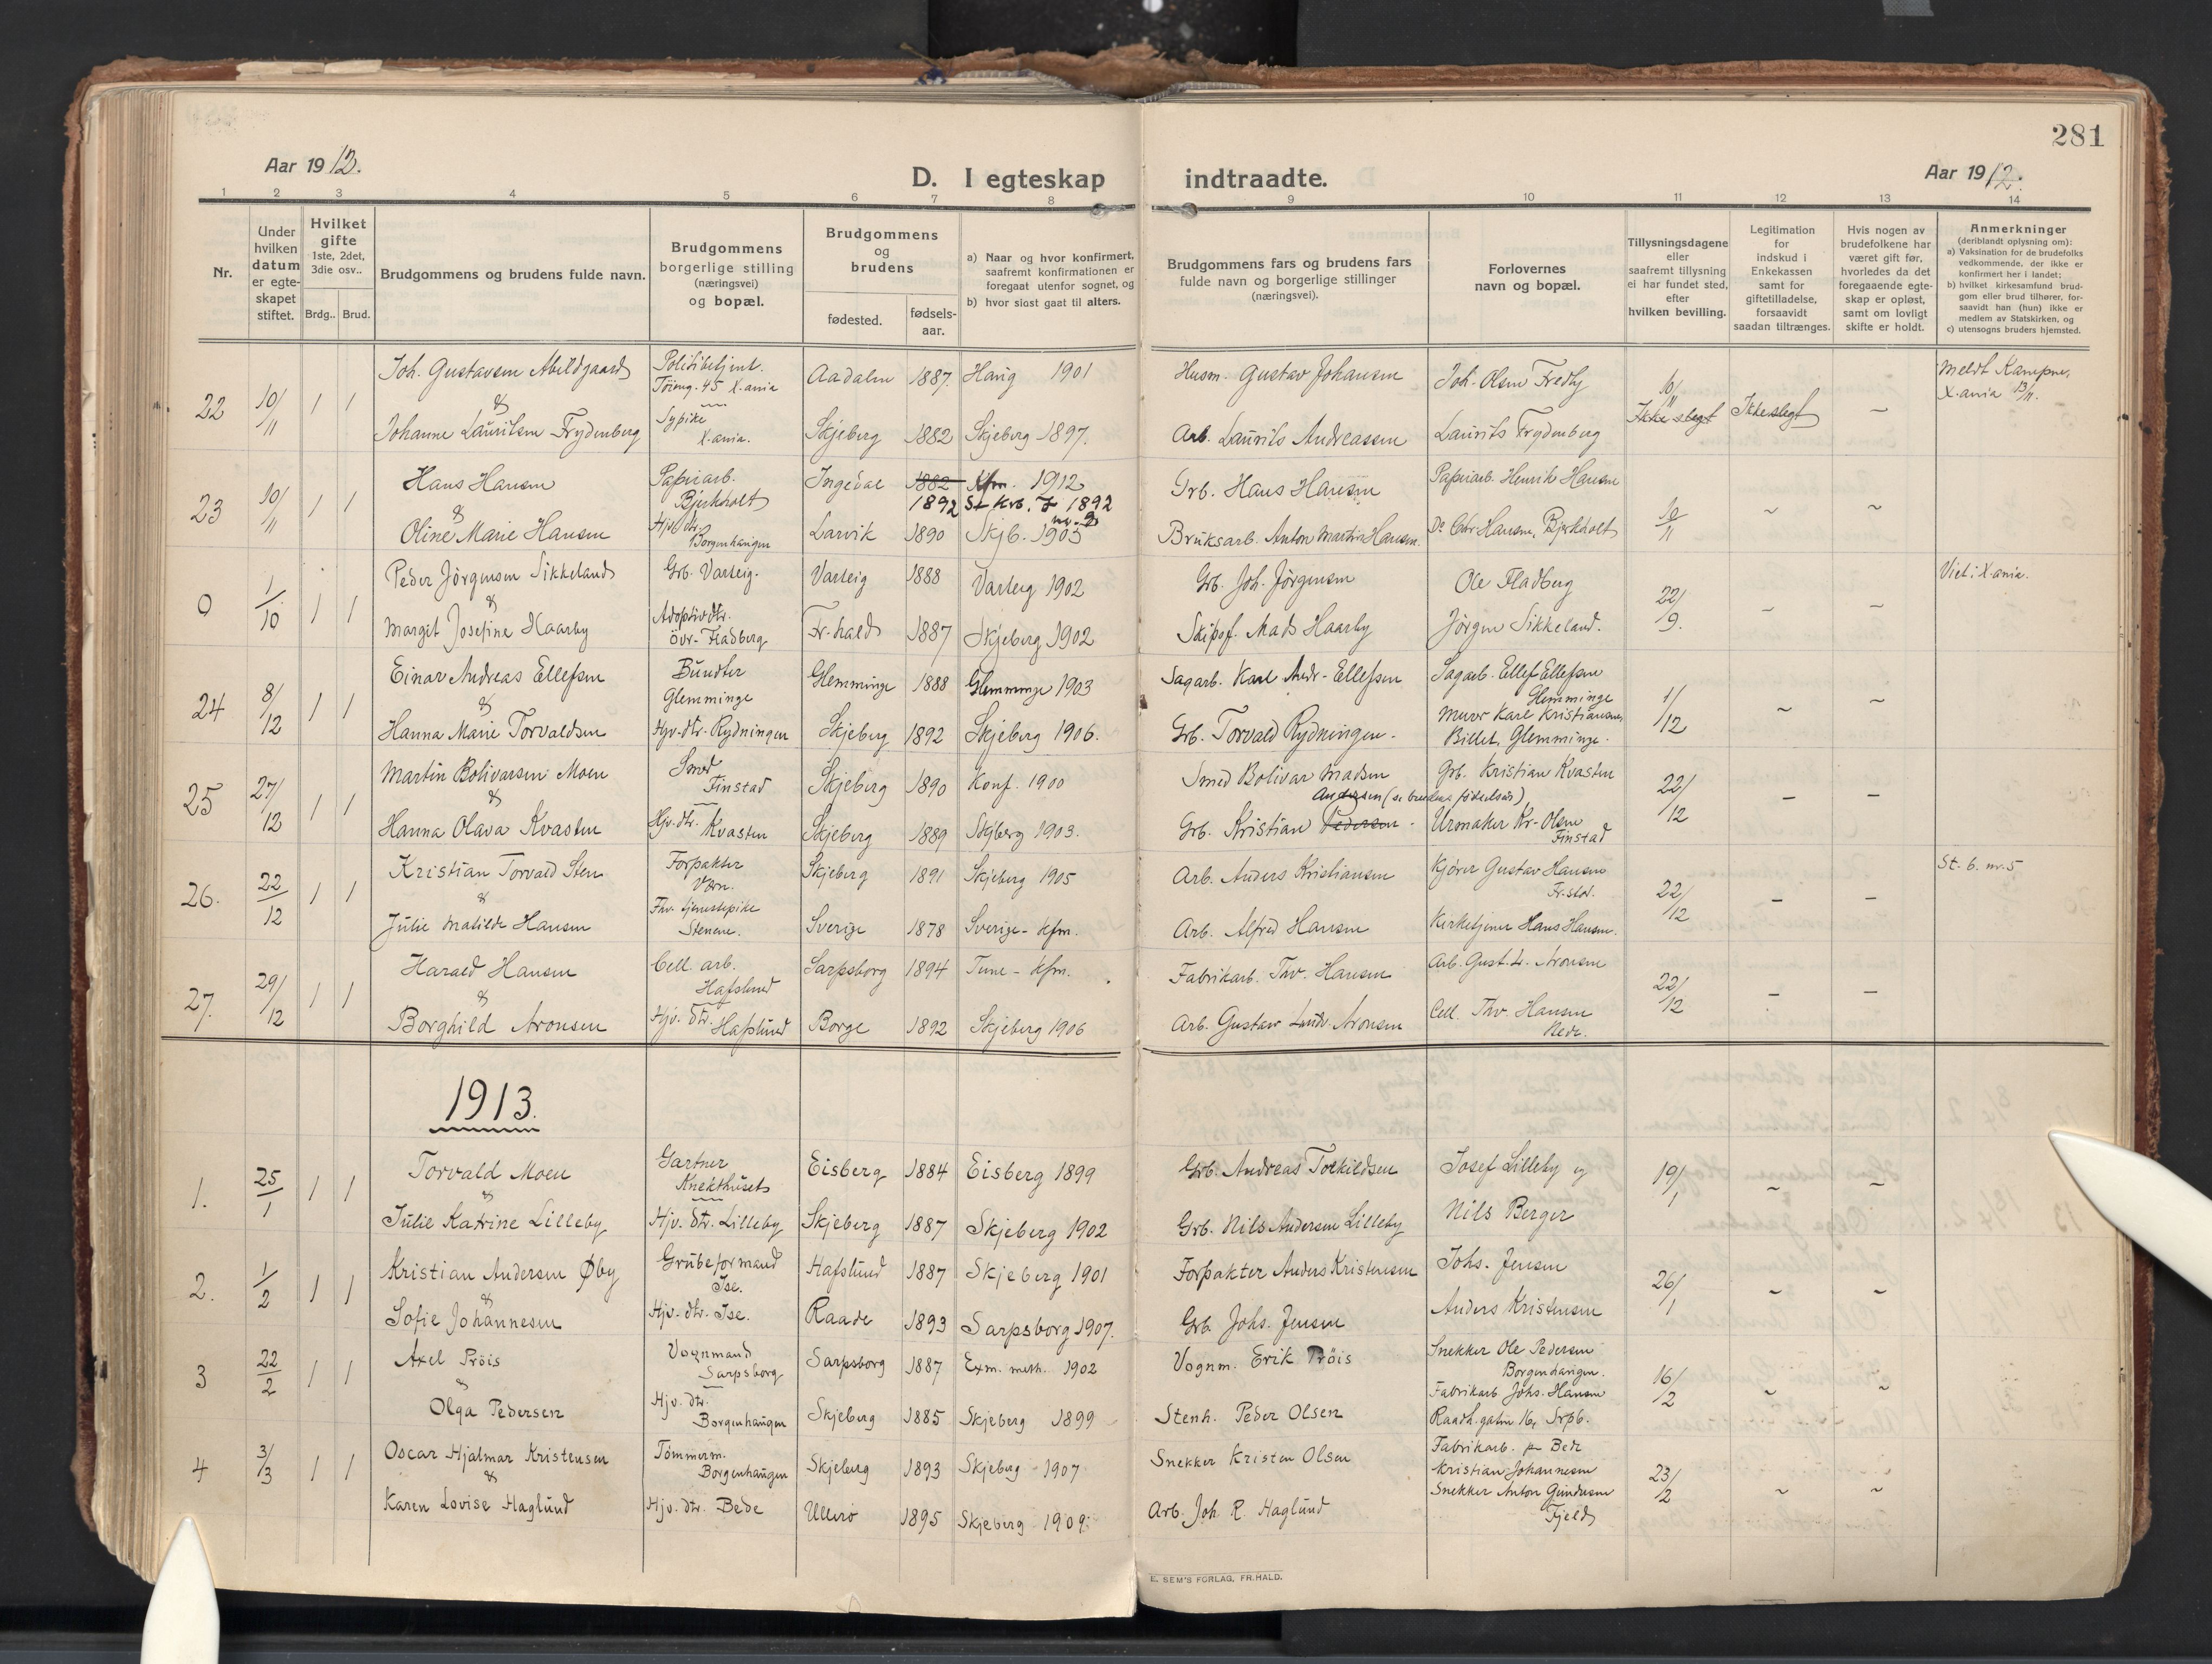 281
Aar 1912.
D. I egteskap indtraadte.
Aar 1912.
1 2 3 4 5 6 7 8 9 10 11 12 13 14
Nr.
Under hvilken datum er egte-skapet stiftet.
Hvilket gifte 1ste, 2det, 3die osv..
Brdg.. Brud.
Brudgommens og brudens fulde navn.
Brudgommens borgerlige stilling (næringsvei) og bopæl.
Brudgommens og brudens
fødested.
fødsels-aar.
a) Naar og hvor konfirmert, saafremt konfirmationen er foregaat utenfor sognet, og
b) hvor sidst gaat til alters.
Brudgommens fars og brudens fars fulde navn og borgerlige stillinger (næringsvei).
Forlovernes navn og bopæl.
Tillysningsdagene eller saafremt tillysning ei har fundet sted, efter hvilken bevilling.
Legitimation for indskud i Enkekassen samt for giftetilladelse, forsaavidt saadan tiltrænges.
Hvis nogen av brudefolkene har været gift før, hvorledes da det foregaaende egte-skap er opløst, samt om lovligt skifte er holdt.
Anmerkninger (deriblandt oplysning om):
a) Vaksination for de brudefolks vedkommende, der ikke er konfirmert her i landet;
b) hvilket kirkesamfund brud-gom eller brud tilhører, for-saavidt han (hun) ikke er medlem av Statskirken, og
c) utensogns bruders hjemsted.
22 10/11 1 1 Joh. Gustavsen Abildgaard Politibetjent. Töieng. 45 X.ania Aadalen 1887. Haug 1901 Husm. Gustav Johansen Joh. Olsen Fredby 10/11 Ikke slegt Ikke slegt ~ Meldt Kampen, X.ania 13/11.
& Johanne Lauritsen Frydenberg Sypike X.ania. Skjeberg 1882 Skjeberg 1897. Arb. Laurits Andreassen Laurits Frydenberg
23 10/11 1 1 Hans Hansen Papirarb. Bjerkholt Ingedal 1882 1892 Kfm. 1912 St. Krb. 7 1892 nr. 2 Grb. Hans Hansen Papirarb. Henrik Hansen 10/11 ~ ~
& Oline Marie Hansen Hjv. dtr. Borgenhaugen Larvik 1890 Skjb. 1905 Bruksarb. Anton Martin Hansen. Do Chr Hansen, Bjerkholt
0 1/10 1 1 Peder Jörgensen Sikkeland Grb. Varteig. Varteig 1888 Varteig 1902 Grb. Joh. Jörgensen Ole Fladberg 22/9. ~ ~ Viet i X.ania.
& Margit Josefine Haarby Adoptivdtr. övr. Fladberg Fr.hald 1887 Skjeberg 1902 Skipsf. Mads Haarby Jörgen Sikkeland.
24 8/12 1 1 Einar Andreas Ellefsen Bundter Glemminge Glemminge 1888 Glemminge 1903 Sagarb. Karl Andr. Ellefsen Sagarb. Ellef Ellefsen Glemminge 1/12 ~ ~
& Hanna Marie Torvaldsen Hjv. dtr. Rydningen Skjeberg 1892 Skjeberg 1906. Grb. Torvald Rydningen. Murer Karl Kristiansen, Billet, Glemminge.
25 27/12 1 1 Martin Bolivarsen Moen Smed Finstad Skjeberg 1890 Konf. 1900 Smed Bolivar Madsen Grb. Kristian Kvasten 22/12 – –
& Hanna Olava Kvasten Hjv. dtr. Kvasten Skjeberg 1889 Skjberg 1903. Grb. Kristian Pedersen. Andersen (se brudens fødselsår) Urmaker Kr. Olsen Finstad
26. 22/12 1 1 Kristian Torvald Sten Forpakter Vern. Skjeberg 1891 Skjeberg 1905 Arb. Anders Kristiansen Kjörer Gustav Hansen Fr.stad. 22/12 – – St. 6. nr. 5
& Julie Matilde Hansen Fhv. tjenestepike Stenene. Sverige 1878 Sverige - Kfm. Arb. Alfred Hansen Kirketjener Hans Hansen.
27. 29/12 1 1 Harald Hansen Cell. arb. Hafslund Sarpsborg 1894 Tune - Kfm. Fabrikarb. Thv. Hansen Arb. Gust. L. Aronsen 22/12 – –
& Borghild Aronsen Hjv. dtr. Hafslund Borge 1892 Skjeberg 1906 Arb. Gustav Ludv. Aronsen Cell. Thv. Hansen Nedr.
1913.
1. 25/1 1 1 Torvald Moen Gartner Knekthuset Eisberg 1884 Eisberg 1899 Grb. Andreas Torkildsen Josef Lilleby og 19/1 ~ ~
& Julie Katrine Lilleby Hjv. dtr. Lilleby Skjeberg 1887 Skjeberg 1902 Grb. Nils Andersen Lilleby Nils Berger
2. 1/2 1 1 Kristian Andersen Øby Grubeformand Ise. Hafslund 1887 Skjeberg 1901 Forpakter Anders Kristensen Johs. Jensen 26/1 ~ ~
& Sofie Johannesen Hjv. dtr. Ise. Raade 1893 Sarpsborg 1907. Grb. Johs. Jensen Anders Kristensen
3 22/2 1 1 Axel Pröis Vognmand Sarpsborg Sarpsborg 1887 Exm. meth. 1902 Vognm. Erik Pröis Snekker Ole Pedersen Borgenhaugen. 16/2 ~ ~
& Olga Pedersen Hjv. dtr. Borgenhaugen Skjeberg 1885 Skjeberg 1899 Stenh. Peder Olsen Fabrikarb Johs. Hansen Raadh.gaten 16, Srpb.
4 3/3 1 1 Oscar Hjalmar Kristensen Tömmerm. Borgenhaugen Skjeberg 1893 Skjeberg 1907 Snekker Kristen Olsen Fabrikarb. Bede Kristian Johannesen 23/2 ~ ~
& Karen Lovise Haglund Hjv. dtr. Bede Ullerö 1895 Skjeberg 1909. Arb. Joh. R. Haglund Snekker Anton Gundersen Fjeld
E. SEM'S FORLAG, FR.HALD.